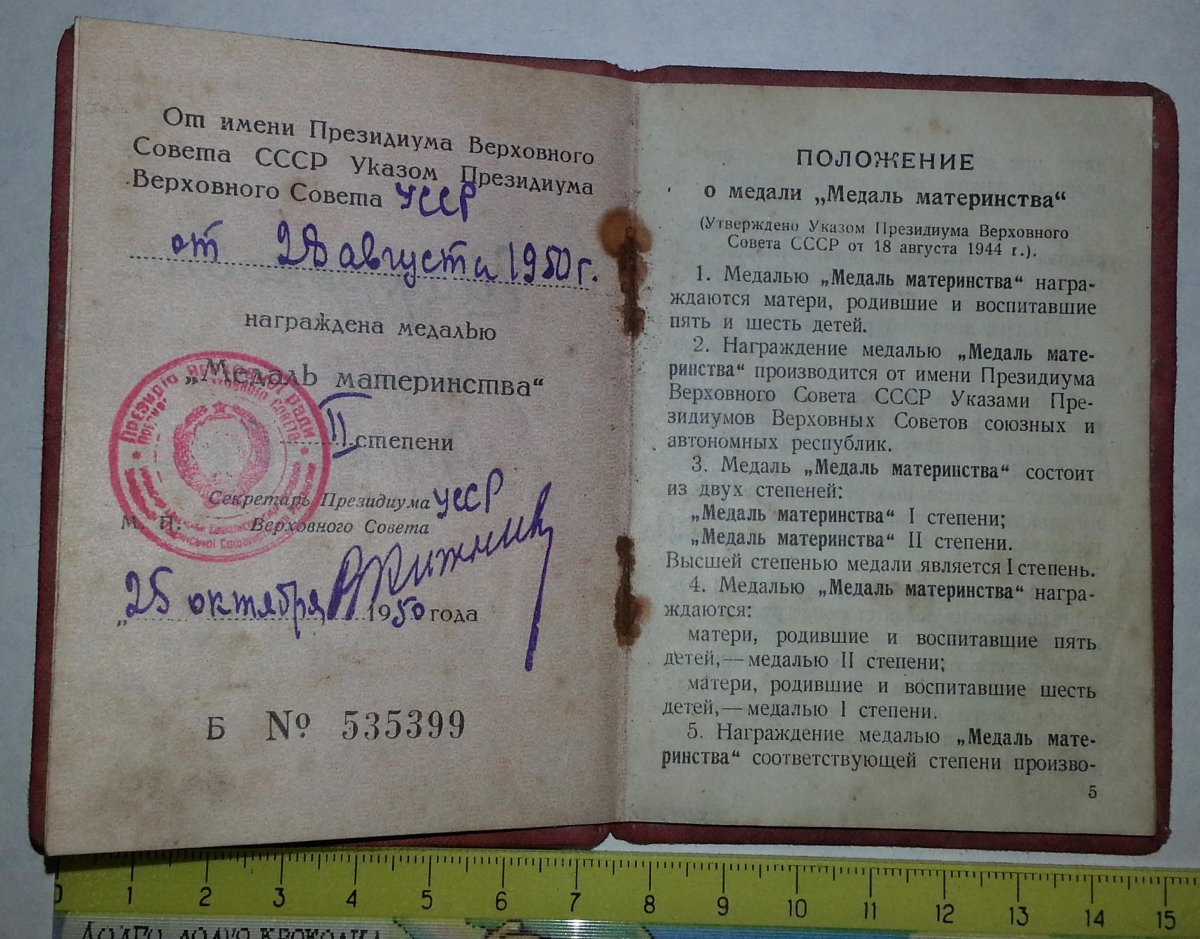 От имени Президиума Верховного
Совета СССР Указом Президиума
Верховного Совета УССР
от 28 августа 1950 г.
награждена медалью
„Медаль материнства“
II степени
Секретарь Президиума УССР
М. П. Верховного Совета
„25 октября 1950 года
Б № 535399
ПОЛОЖЕНИЕ
о медали „Медаль материнства“
(Утверждено Указом Президиума Верховного
Совета СССР от 18 августа 1944 г.).
1. Медалью „Медаль материнства“ награ-
ждаются матери, родившие и воспитавшие
пять и шесть детей.
2. Награждение медалью „Медаль мате-
ринства“ производится от имени Президиума
Верховного Совета СССР Указами Пре-
зидиумов Верховных Советов союзных и
автономных республик.
3. Медаль „Медаль материнства“ состоит
из двух степеней:
„Медаль материнства“ I степени;
„Медаль материнства“ II степени.
Высшей степенью медали является I степень.
4. Медалью „Медаль материнства“ награ-
ждаются:
матери, родившие и воспитавшие пять
детей,—медалью II степени;
матери, родившие и воспитавшие шесть
детей,—медалью I степени.
5. Награждение медалью „Медаль мате-
ринства“ соответствующей степени произво-
5
0 1 2 3 4 5 6 7 8 9 10 11 12 13 14 15